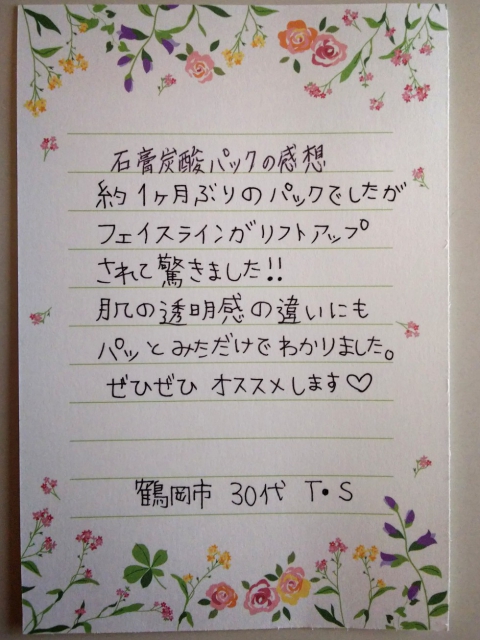 石膏炭酸パックの感想
約1ヶ月ぶりのパックでしたが
フェイスラインがリフトアップ
されて驚きました!!
肌の透明感の違いにも
パッとみただけでわかりました。
ぜひぜひ オススメします♡
鶴岡市 30代 T・S